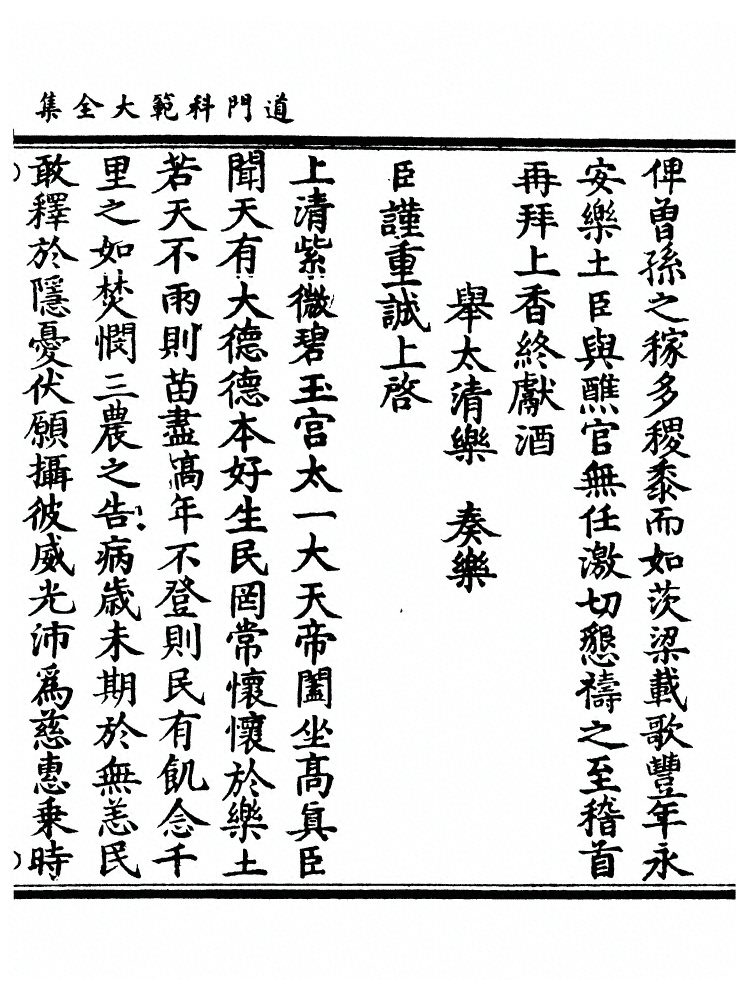 道門科範大全集
俾曾孫之稼多稷黍而如茨梁載歌豐年永
安樂土臣與醮官無任激切懇禱之至稽首
再拜上香終獻酒
舉太清樂　奏樂
臣謹重誠上啓
上清紫微碧玉宮太一大天帝闔坐高真臣
聞天有大德德本好生民罔常懷懷於樂土
若天不雨則苗盡槁年不登則民有飢念千
里之如焚憫三農之告病歲未期於無恙民
敢釋於隱憂伏願攝彼威光沛爲慈惠乘時